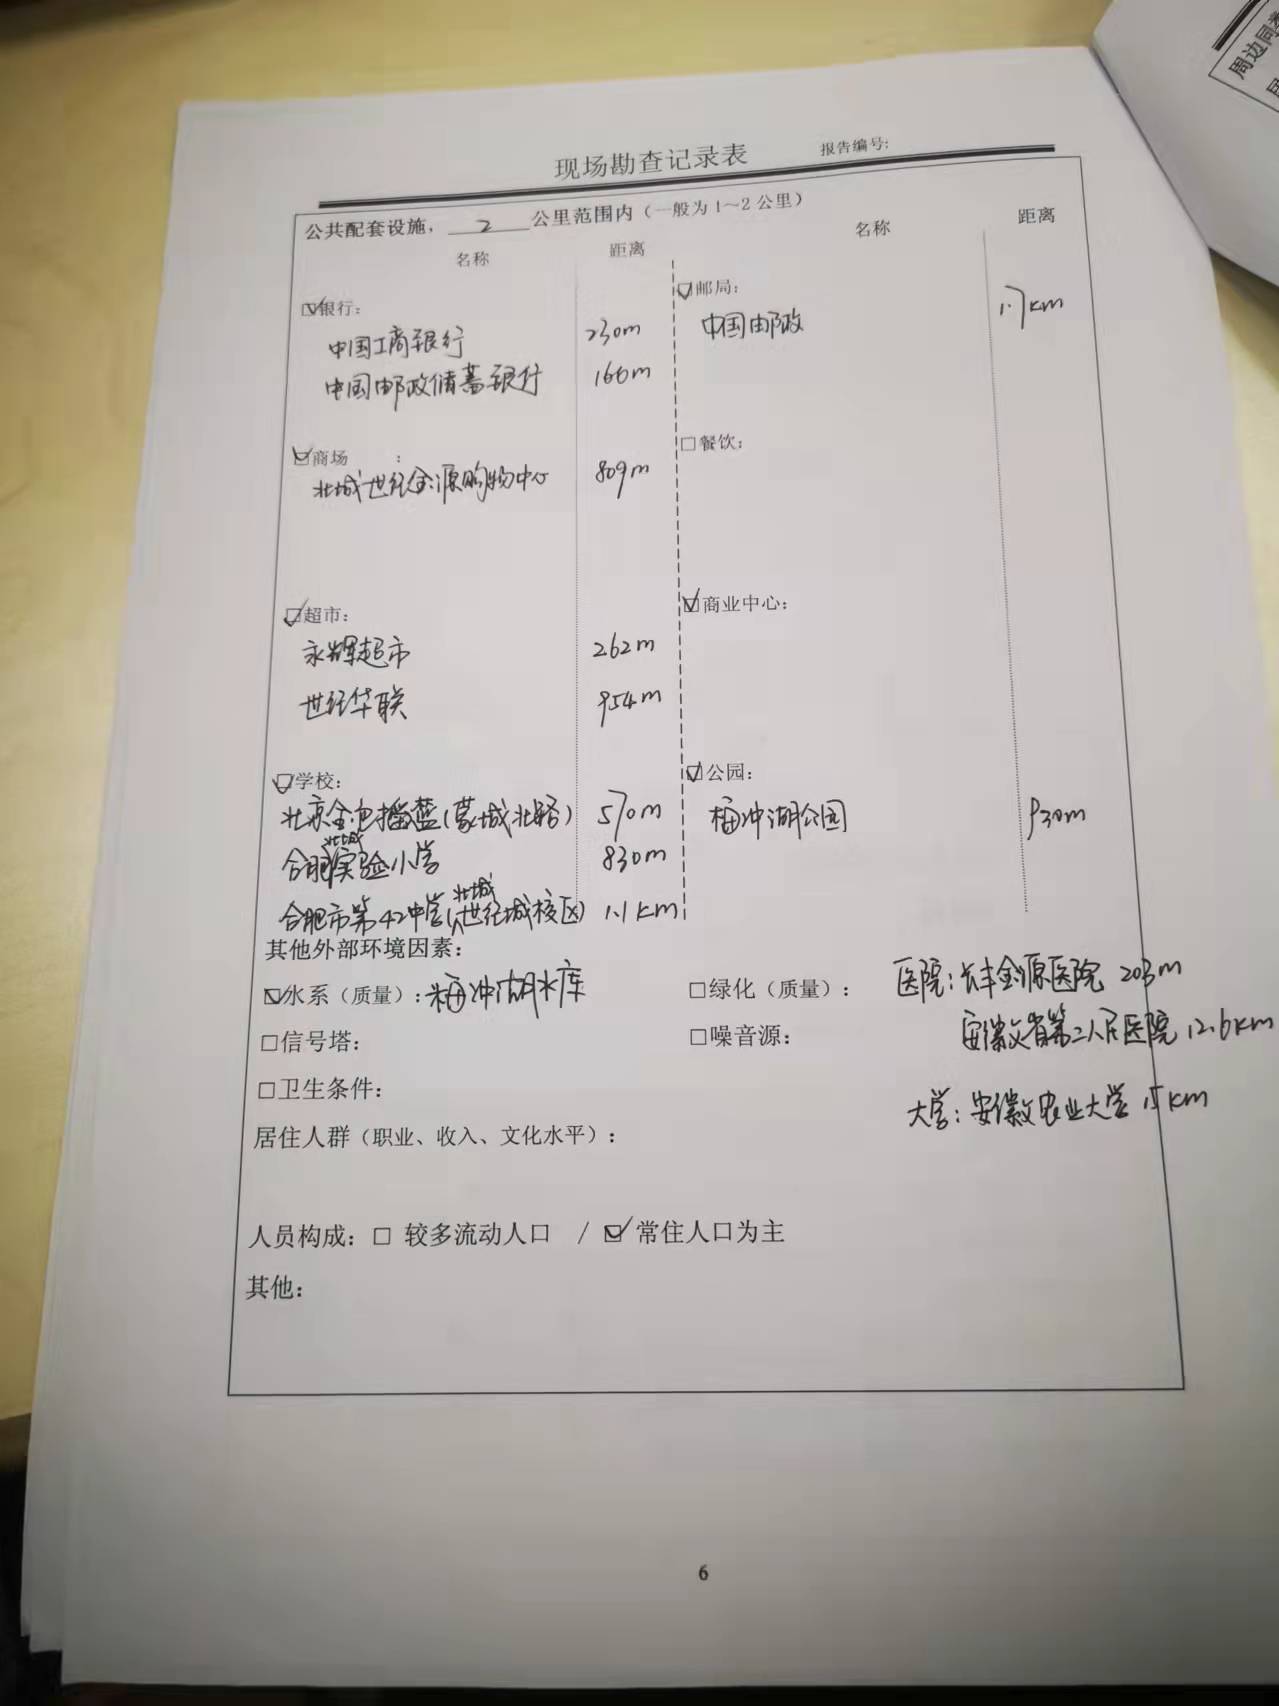 周边同
居
现场勘查记录表 报告编号:
公共配套设施, 2 公里范围内（一般为1～2公里）
名称 距离 名称 距离
☑银行: ☑邮局:
中国工商银行 230m 中国邮政 1.7km
中国邮政储蓄银行 166m
☑商场 : □餐饮:
北城世纪金源购物中心 809m
☑超市: ☑商业中心:
永辉超市 262m
世纪华联 954m
☑学校: ☑公园:
北京金色摇篮(蒙城北路) 570m 梅冲湖公园 930m
合肥北城实验小学 830m
合肥市第42中学(北城世纪城校区) 1.1km
其他外部环境因素:
☑水系（质量）: 梅冲湖水库 □绿化（质量）: 医院: 长丰金源医院 203m
□信号塔: □噪音源: 安徽省第二人民医院 12.6km
□卫生条件: 大学: 安徽农业大学 15km
居住人群（职业、收入、文化水平）:
人员构成: □ 较多流动人口 / ☑常住人口为主
其他:
6